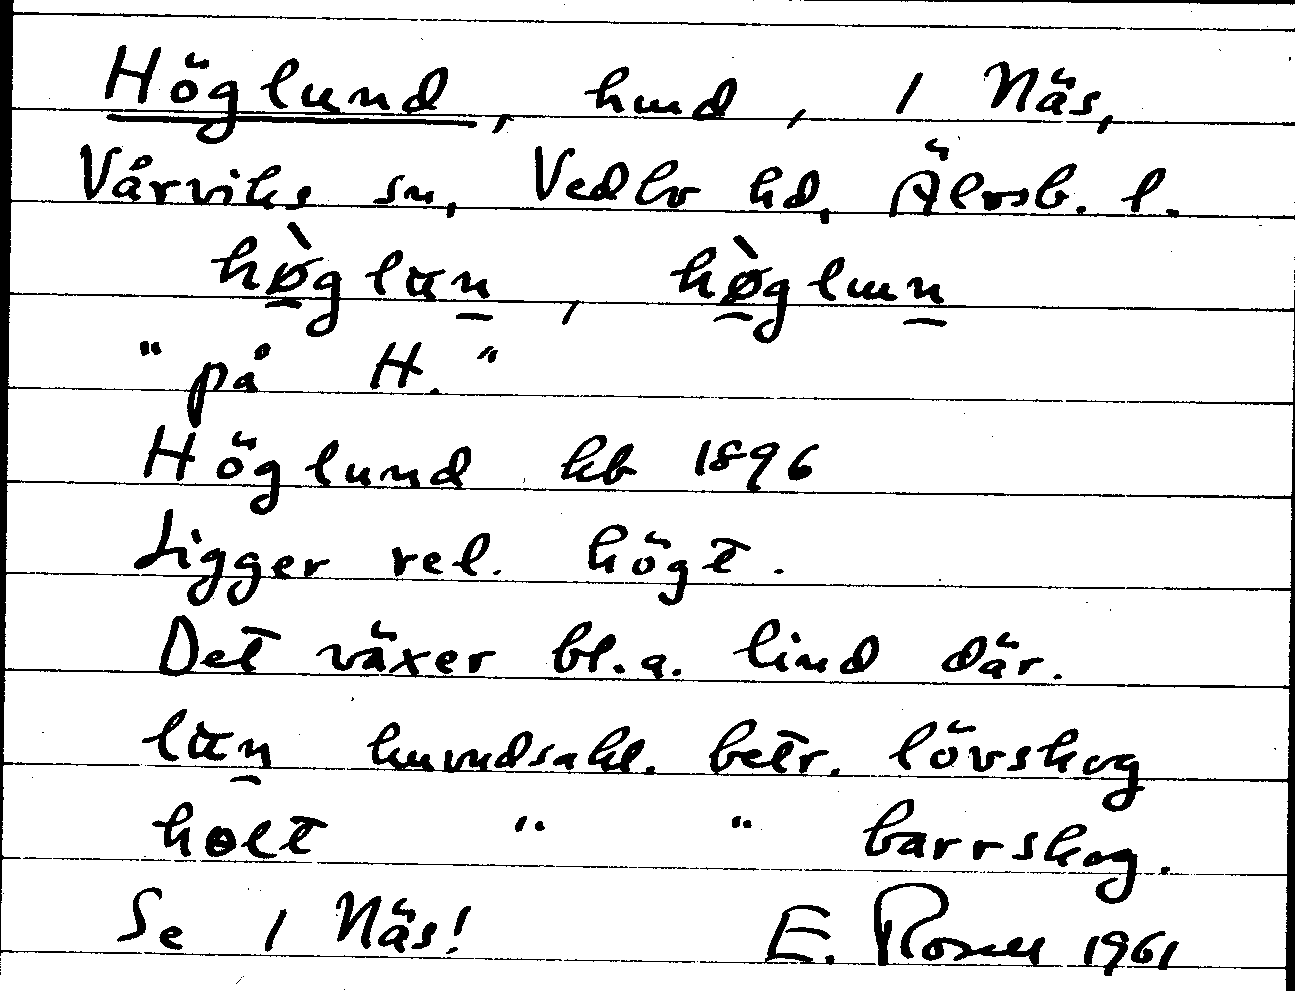 Höglund, hmd, 1 Näs,
Vårviks sn, Vedbo hd, Älvsb. l.
hø̀glun, hø̀glun
"på H."
Höglund kb 1896
Ligger rel. högt.
Det växer bl.a. lind där.
lun huvudsakl. betr. lövskog
holt " " barrskog.
Se 1 Näs! E. 1961